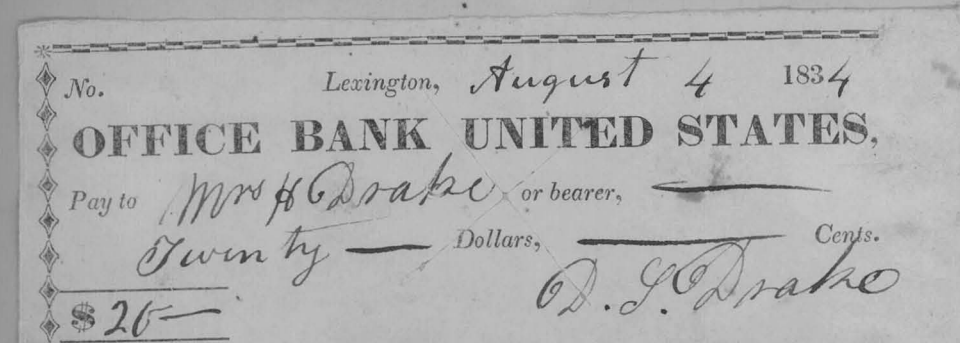 No. Lexington, August 4 1834
OFFICE BANK UNITED STATES,
Pay to Mrs H Drake or bearer, —
Twenty — Dollars, — Cents.
D. S. Drake
$ 20 —